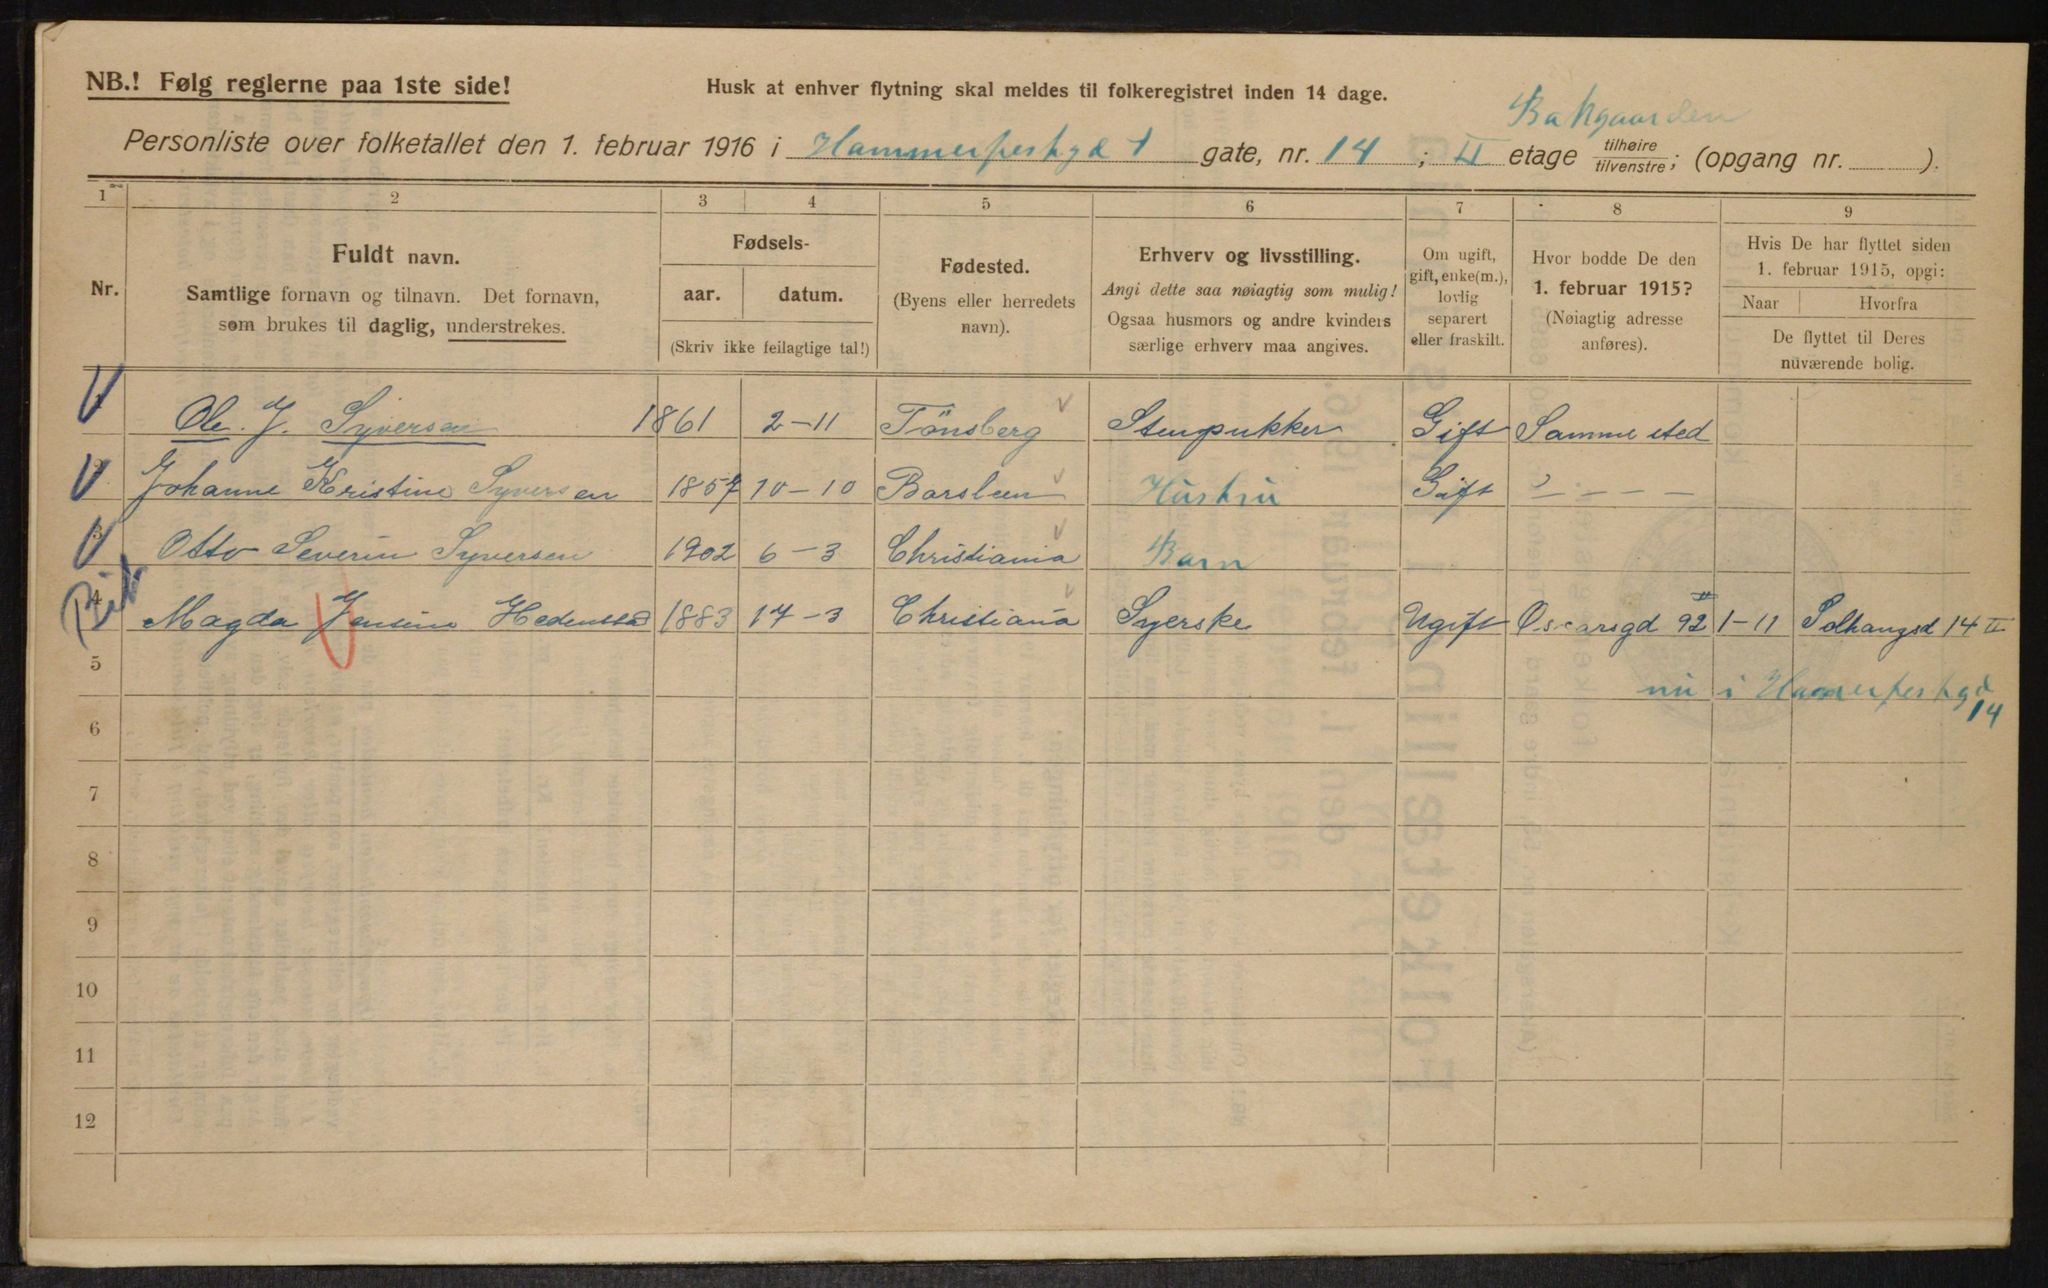 NB.! Følg reglerne paa 1ste side!
Husk at enhver flytning skal meldes til folkeregistret inden 14 dage.
Bakgaarden
Personliste over folketallet den 1. februar 1916 i Hammerfestgd 1 gate, nr. 14 ; II etage tilhøire tilvenstre; (opgang nr. ).
1 2 3 4 5 6 7 8 9
Nr.
Fuldt navn.
Samtlige fornavn og tilnavn. Det fornavn,
som brukes til daglig, understrekes.
Fødsels-
aar. datum.
(Skriv ikke feilagtige tal!)
Fødested.
(Byens eller herredets
navn).
Erhverv og livsstilling.
Angi dette saa nøiagtig som mulig!
Ogsaa husmors og andre kvinders
særlige erhverv maa angives.
Om ugift,
gift, enke(m.),
lovlig
separert
eller fraskilt.
Hvor bodde De den
1. februar 1915?
(Nøiagtig adresse
anføres).
Hvis De har flyttet siden
1. februar 1915, opgi:
Naar Hvorfra
De flyttet til Deres
nuværende bolig.
Ole. J. Syversen 1861 2-11 Tönsberg Stenpukker Gift Samme sted
2 Johanne Kristine Syversen 1857 10-10 Gift
3 Otto Severin Syversen 1902 6-3 Christiania Barn
4 Magda Jensine Hedenstad 1883 17-3 Christiania Syerske Ugift Oscarsgd 92 II 1-11 Solhaugsd 14 II
5 nu i Hammerfestgd
14
6
7
8
9
10
11
12